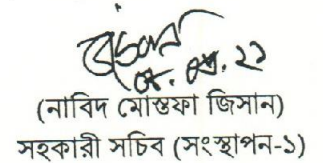 (নাবিদ মোস্তফা জিসান)
সহকারী সচিব (সংস্থাপন-১)